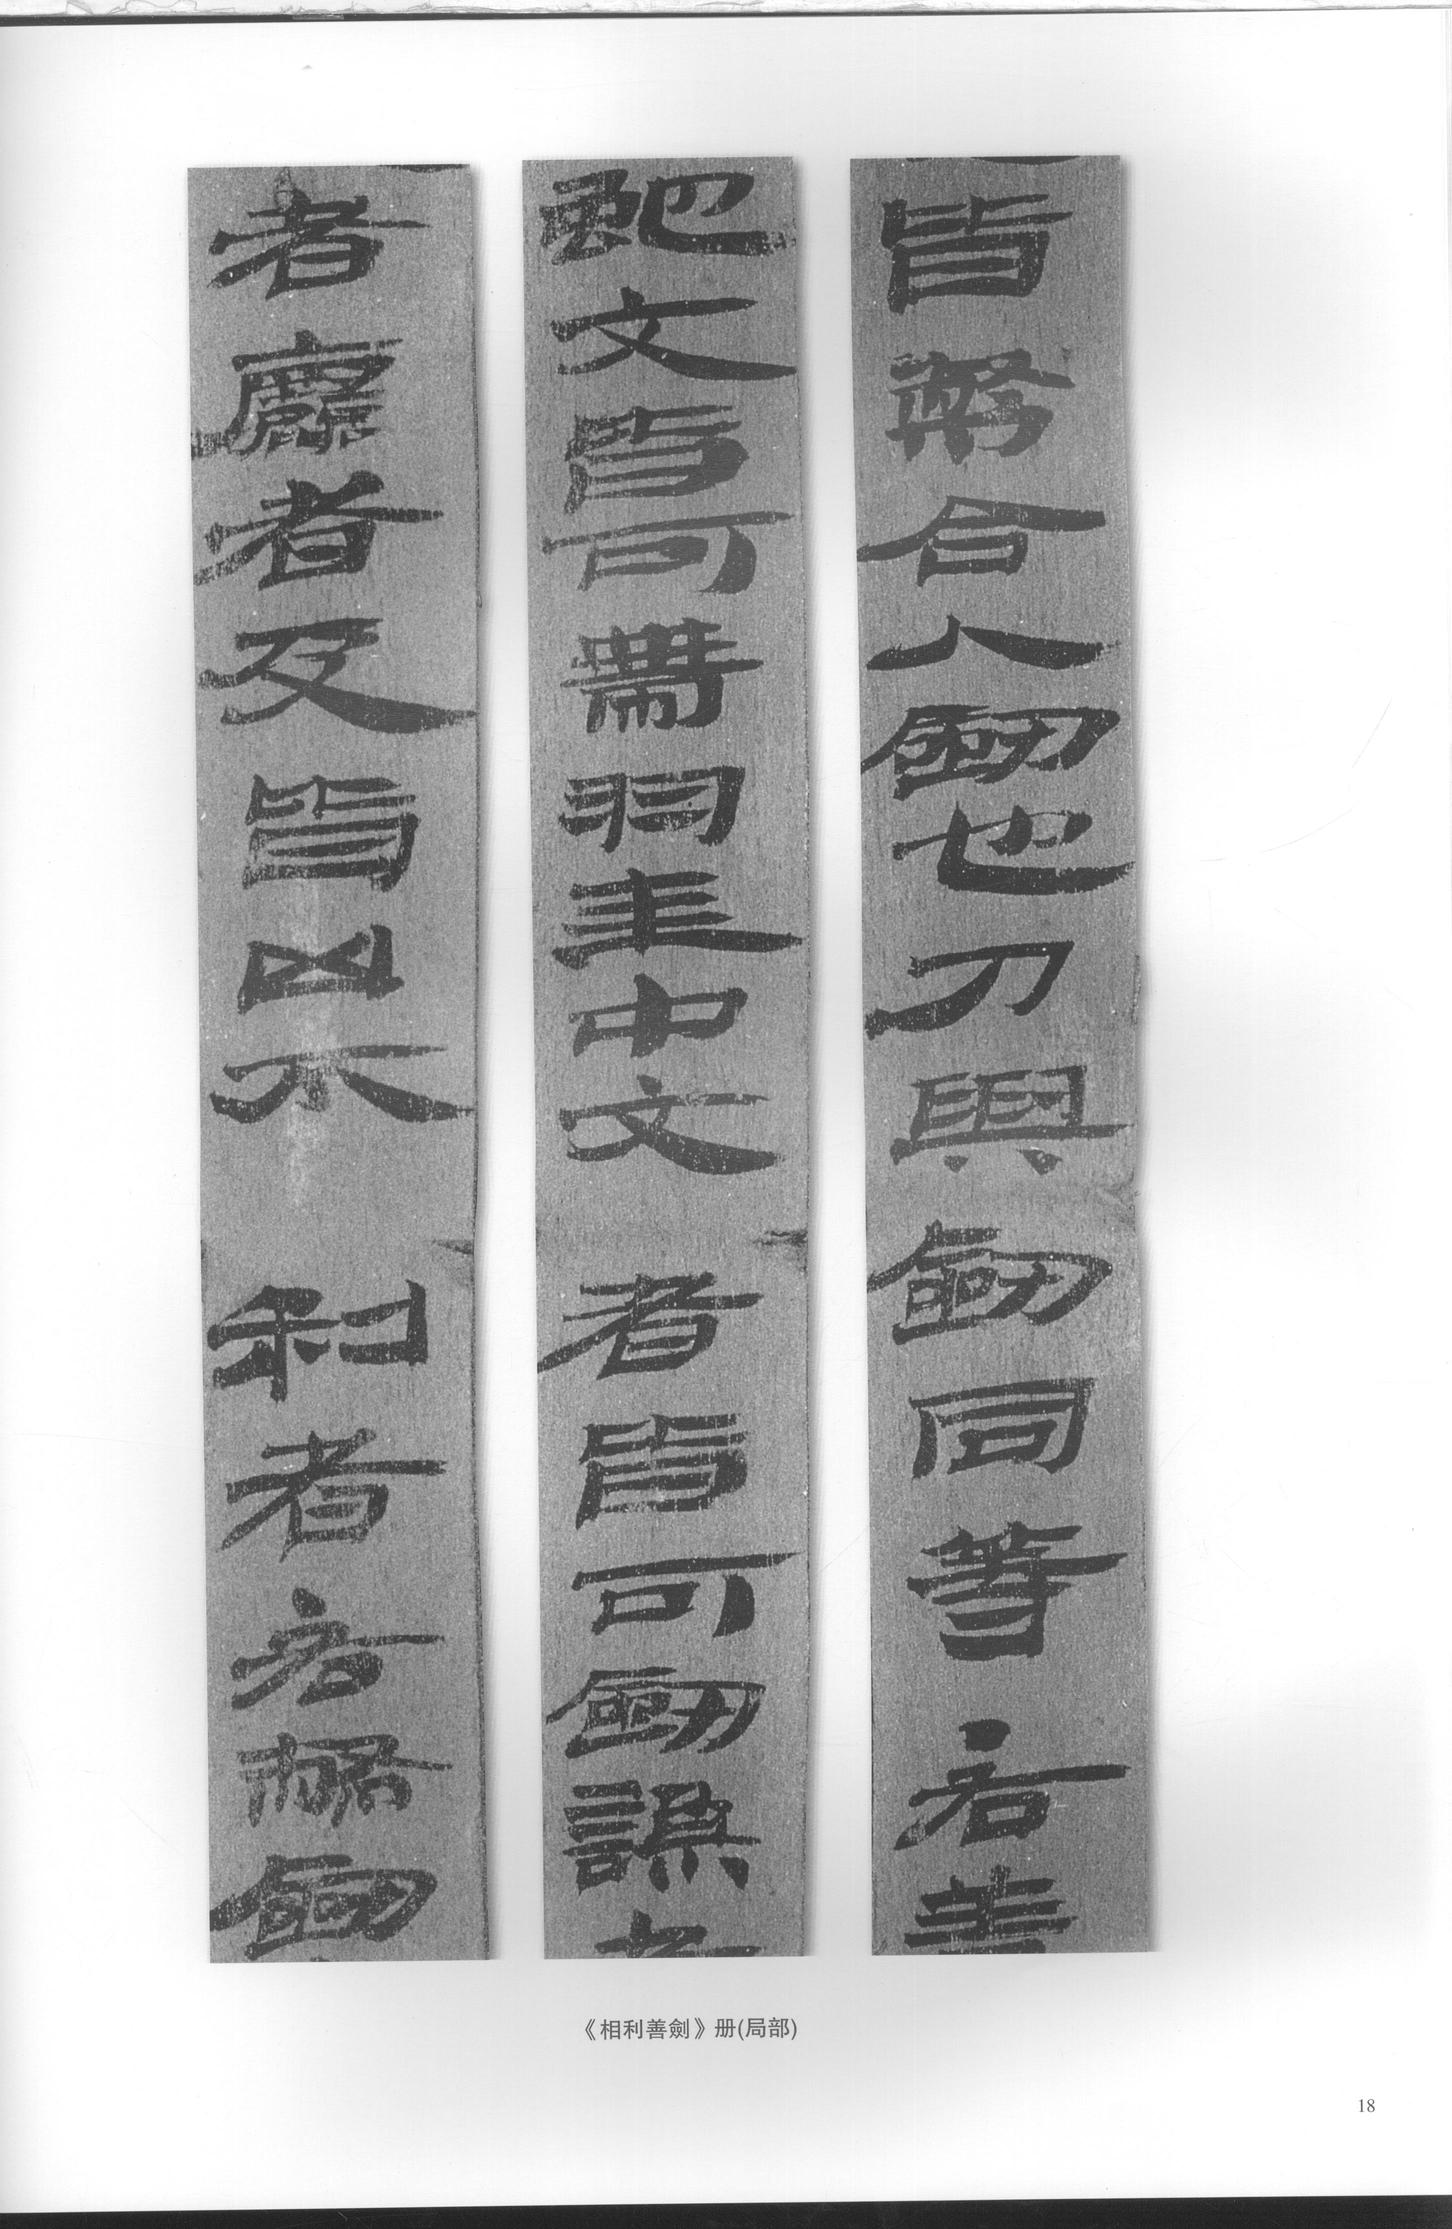 皆幣合人劍也刀與劍同等 ●右善
虵文皆可帶羽圭中文者皆可劍謙者
者麤者及皆凶不利者 ●右幣劍
《相利善劍》册(局部)
18